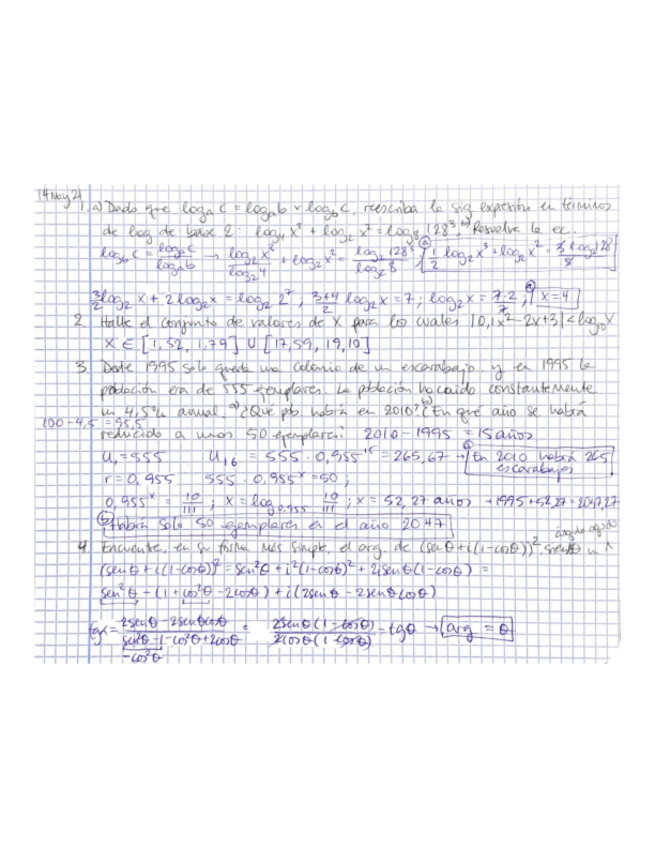 14 Nov 21
1. a) Dado que logₐ c = logₐ b × log_b c, reescriba la sig expresión en términos
de log de base 2: log₄ x³ + log₂ x² = log₈ 128³. b) Resuelva la ec.
log_b c = logₐ c / logₐ b → log₂ x³ / log₂ 4 + log₂ x² = log₂ 128³ / log₂ 8; a) 1/2 log₂ x³ + log₂ x² = 3 log₂ 128 / 3
3/2 log₂ x + 2 log₂ x = log₂ 2⁷; (3+4)/2 log₂ x = 7; log₂ x = 7·2/7; b) x = 4
2. Halle el conjunto de valores de x para los cuales |0,1x² - 2x + 3| < log₁₀ x
x ∈ [1,52, 1,79] ∪ [17,59, 19,10]
3. Desde 1995 solo queda una colonia de un escarabajo y en 1995 la
población era de 555 ejemplares. La población ha caído constantemente
un 4,5% anual a) ¿Qué pb habrá en 2010? b) ¿En qué año se habrá
100 - 4,5 = 95,5
reducido a unos 50 ejemplares? 2010 - 1995 = 15 años
u₁ = 555 u₁₆ = 555 · 0,955¹⁵ = 265,67 → a) En 2010 habrá 265
escarabajos
r = 0,955 555 · 0,955ˣ = 50;
0,955ˣ = 10/111; x = log₀,₉₅₅ 10/111; x = 52,27 años → 1995 + 52,27 = 2047,27
b) Habrá solo 50 ejemplares en el año 2047
ángulo agudo
4. Encuentre, en su forma más simple, el arg de (sen θ + i(1 - cos θ))². siendo θ un
(sen θ + i(1 - cos θ))² = sen² θ + i²(1 - cos θ)² + 2i sen θ (1 - cos θ) =
sen² θ - (1 + cos² θ - 2cos θ) + i(2sen θ - 2sen θ cos θ)
tg α = (2sen θ - 2sen θ cos θ) / (sen² θ - 1 - cos² θ + 2cos θ) = 2sen θ (1 - cos θ) / 2cos θ (1 - cos θ) = tg θ → arg = θ
-cos² θ